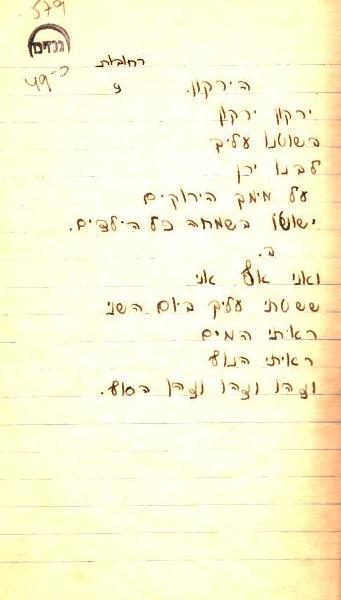 579
נגדים
49-כ
רחובות
הירקון. 9
ירקון ירקון
בשוטנו עליך
לבנו ירן
על מימך הירוקים
ישוטו בשמחה כל הילדים.
ב.
ואני אף אני
ששטתי עליך ביום השני
ראיתי המים
ראיתי הנוף
וזהו וזהו וזהו הסוף.